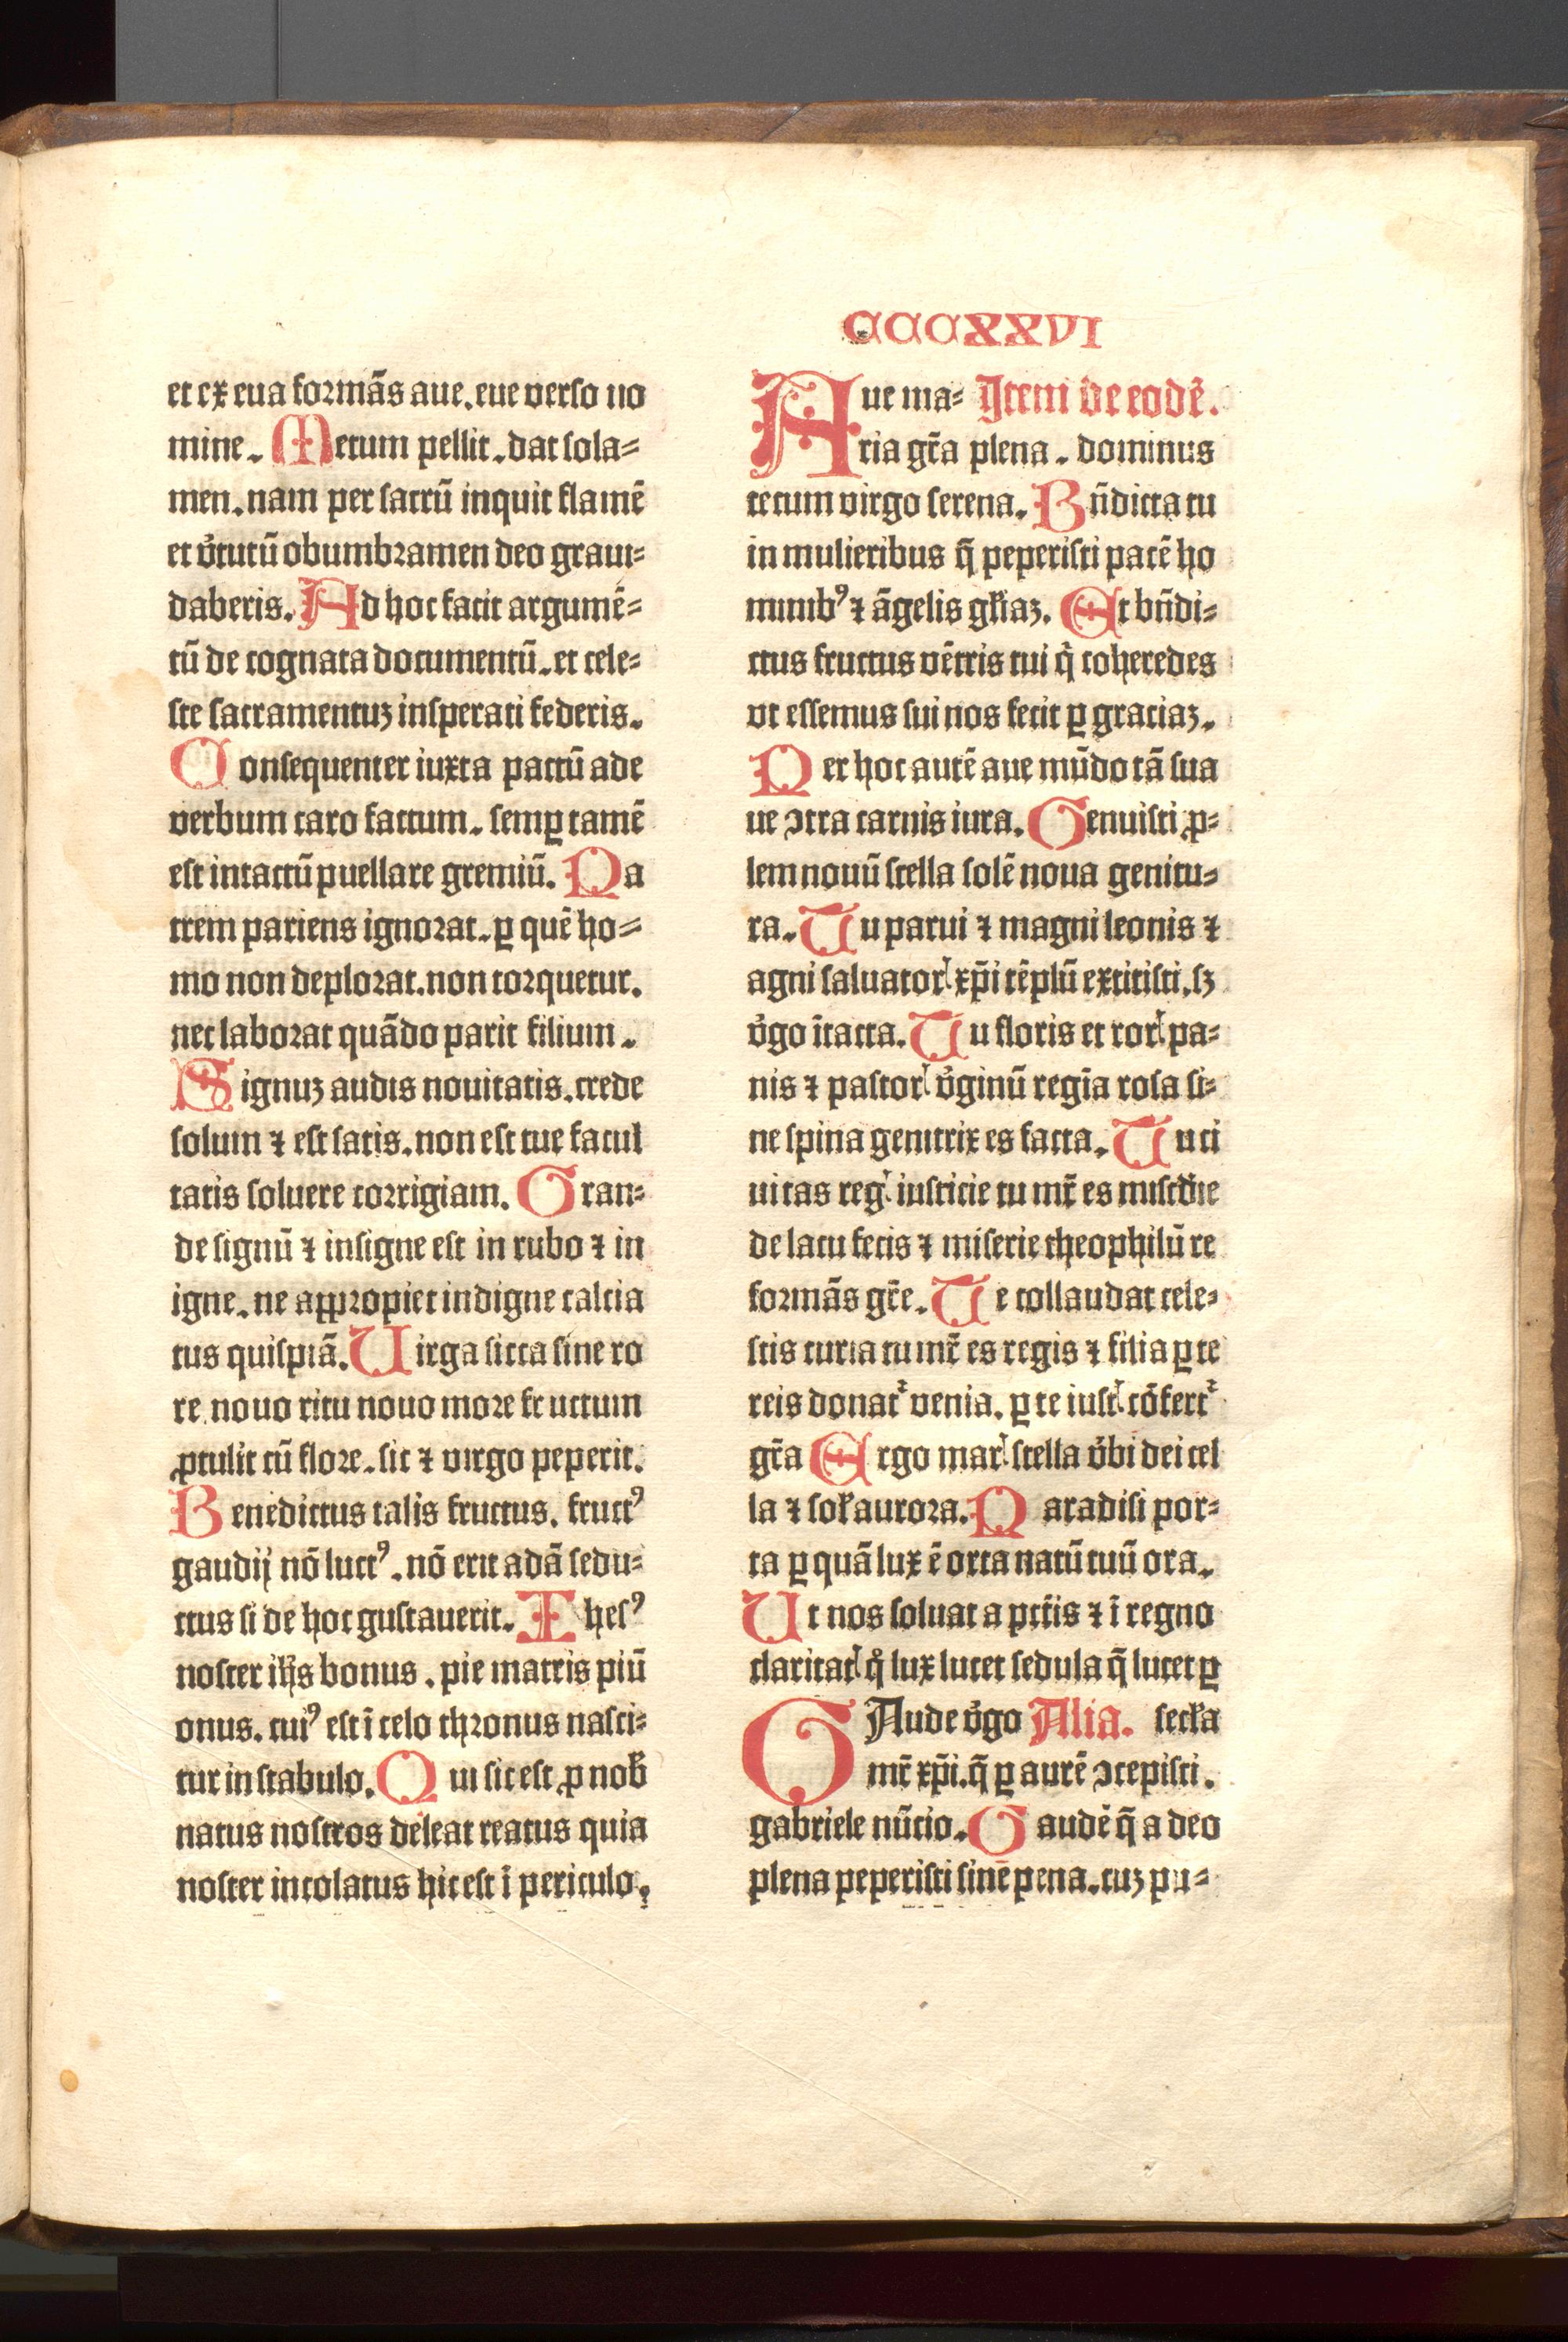 CCCXXVI
et ex eua formãs aue. eue verso no
mine. Metum pellit. dat sola⸗
men. nam per sacrũ inquit flamẽ
et v̾tutũ obumbramen deo graui⸗
daberis. Ad hoc facit argumẽ⸗
tũ de cognata documentũ. et cele⸗
ste sacramentuꝫ insperati federis.
Consequenter iuxta pactũ ade
verbum caro factum. semꝑ tamẽ
est intactũ puellare gremiũ. Pa
trem pariens ignorat. ꝑ quẽ ho⸗
mo non deplorat. non torquetur.
nec laborat quãdo parit filium.
Signuꝫ audis nouitatis. crede
solum ⁊ est satis. non est tue facul
tatis soluere corrigiam. Gran⸗
de signũ ⁊ insigne est in rubo ⁊ in
igne. ne appropiet indigne calcia
tus quispiã. Uirga sicca sine ro
re nouo ritu nouo more fructum
ꝓtulit cũ flore. sic ⁊ virgo peperit.
Benedictus talis fructus. fructꝰ
gaudij nõ luctꝰ. nõ erit adã sedu⸗
ctus si de hoc gustauerit. Ihesꝰ
noster ih̃s bonus. pie matris piũ
onus. cuiꝰ est ĩ celo thronus nasci⸗
tur in stabulo. Qui sic est ꝓ nob̃
natus nostros deleat reatus quia
noster incolatus hic est ĩ periculo.
Aue ma⸗ Item de eodẽ.
ria gr̃a plena. dominus
tecum virgo serena. Bñdicta tu
in mulieribus q̃ peperisti pacẽ ho
minibꝰ ⁊ ãgelis gl̃iaꝫ. Et bñdi⸗
ctus fructus vẽtris tui q̇ coheredes
vt essemus sui nos fecit ꝑ graciaꝫ.
Per hoc autẽ aue mũdo tã sua
ue ↄtra carnis iura. Genuisti ꝓ⸗
lem nouũ stella solẽ noua genitu⸗
ra. Tu parui ⁊ magni leonis ⁊
agni saluatorꝭ xp̃i tẽplũ extitisti. sꝫ
v̾go ĩtacta. Tu floris et rorꝭ pa⸗
nis ⁊ pastorꝭ v̾ginũ regĩa rosa si⸗
ne spina genitrix es facta. Tu ci
uitas regꝭ iusticie tu mr̃ es mis̃cd̃ie
de lacu fecis ⁊ miserie theophilũ re
formãs gr̃e. Te collaudat cele⸗
stis curia tu mr̃ es regis ⁊ filia ꝑ te
reis donat᷑ venia. ꝑ te iustꝭ cõfert᷑
gr̃a Ergo marꝭ stella v̾bi dei cel
la ⁊ sol̃ aurora. Paradisi por⸗
ta ꝑ quã lux ẽ orta natũ tuũ ora.
Ut nos soluat a pctĩs ⁊ ĩ regno
claritatꝭ q̊ lux lucet sedula q̃ lucet ꝑ
GAude v̾go Alia. secl̃a
mr̃ xp̃i. q̃ ꝑ aurẽ ↄcepisti.
gabriele nũcio. Gaudẽ q̃ a deo
plena peperisti sinẽ pena. cuꝫ pu⸗